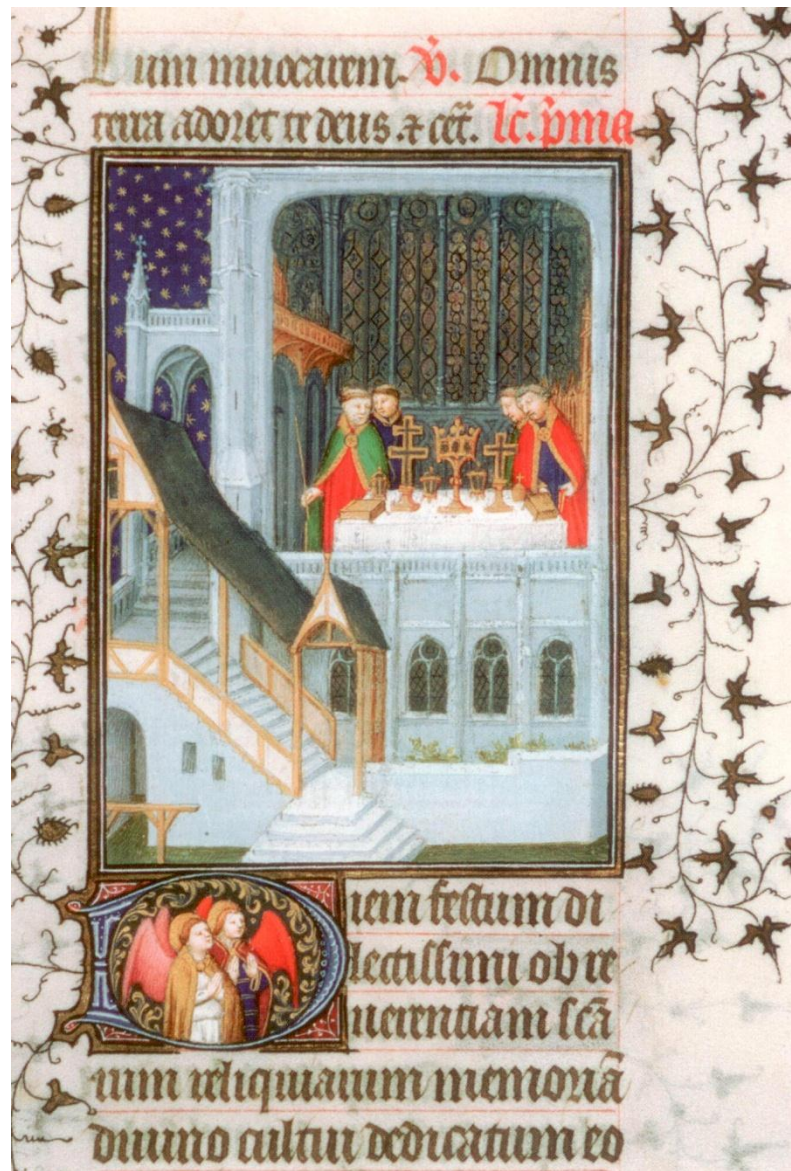 tum invocarem. V̄. Omnis
terra adoret te deus. ⁊ cet̄. lc̄. p̄ma
Diem festum di
lectissimi ob re
uerentiam sc̄a
rum reliquiarum memoriā
diuino cultui dedicatum eo